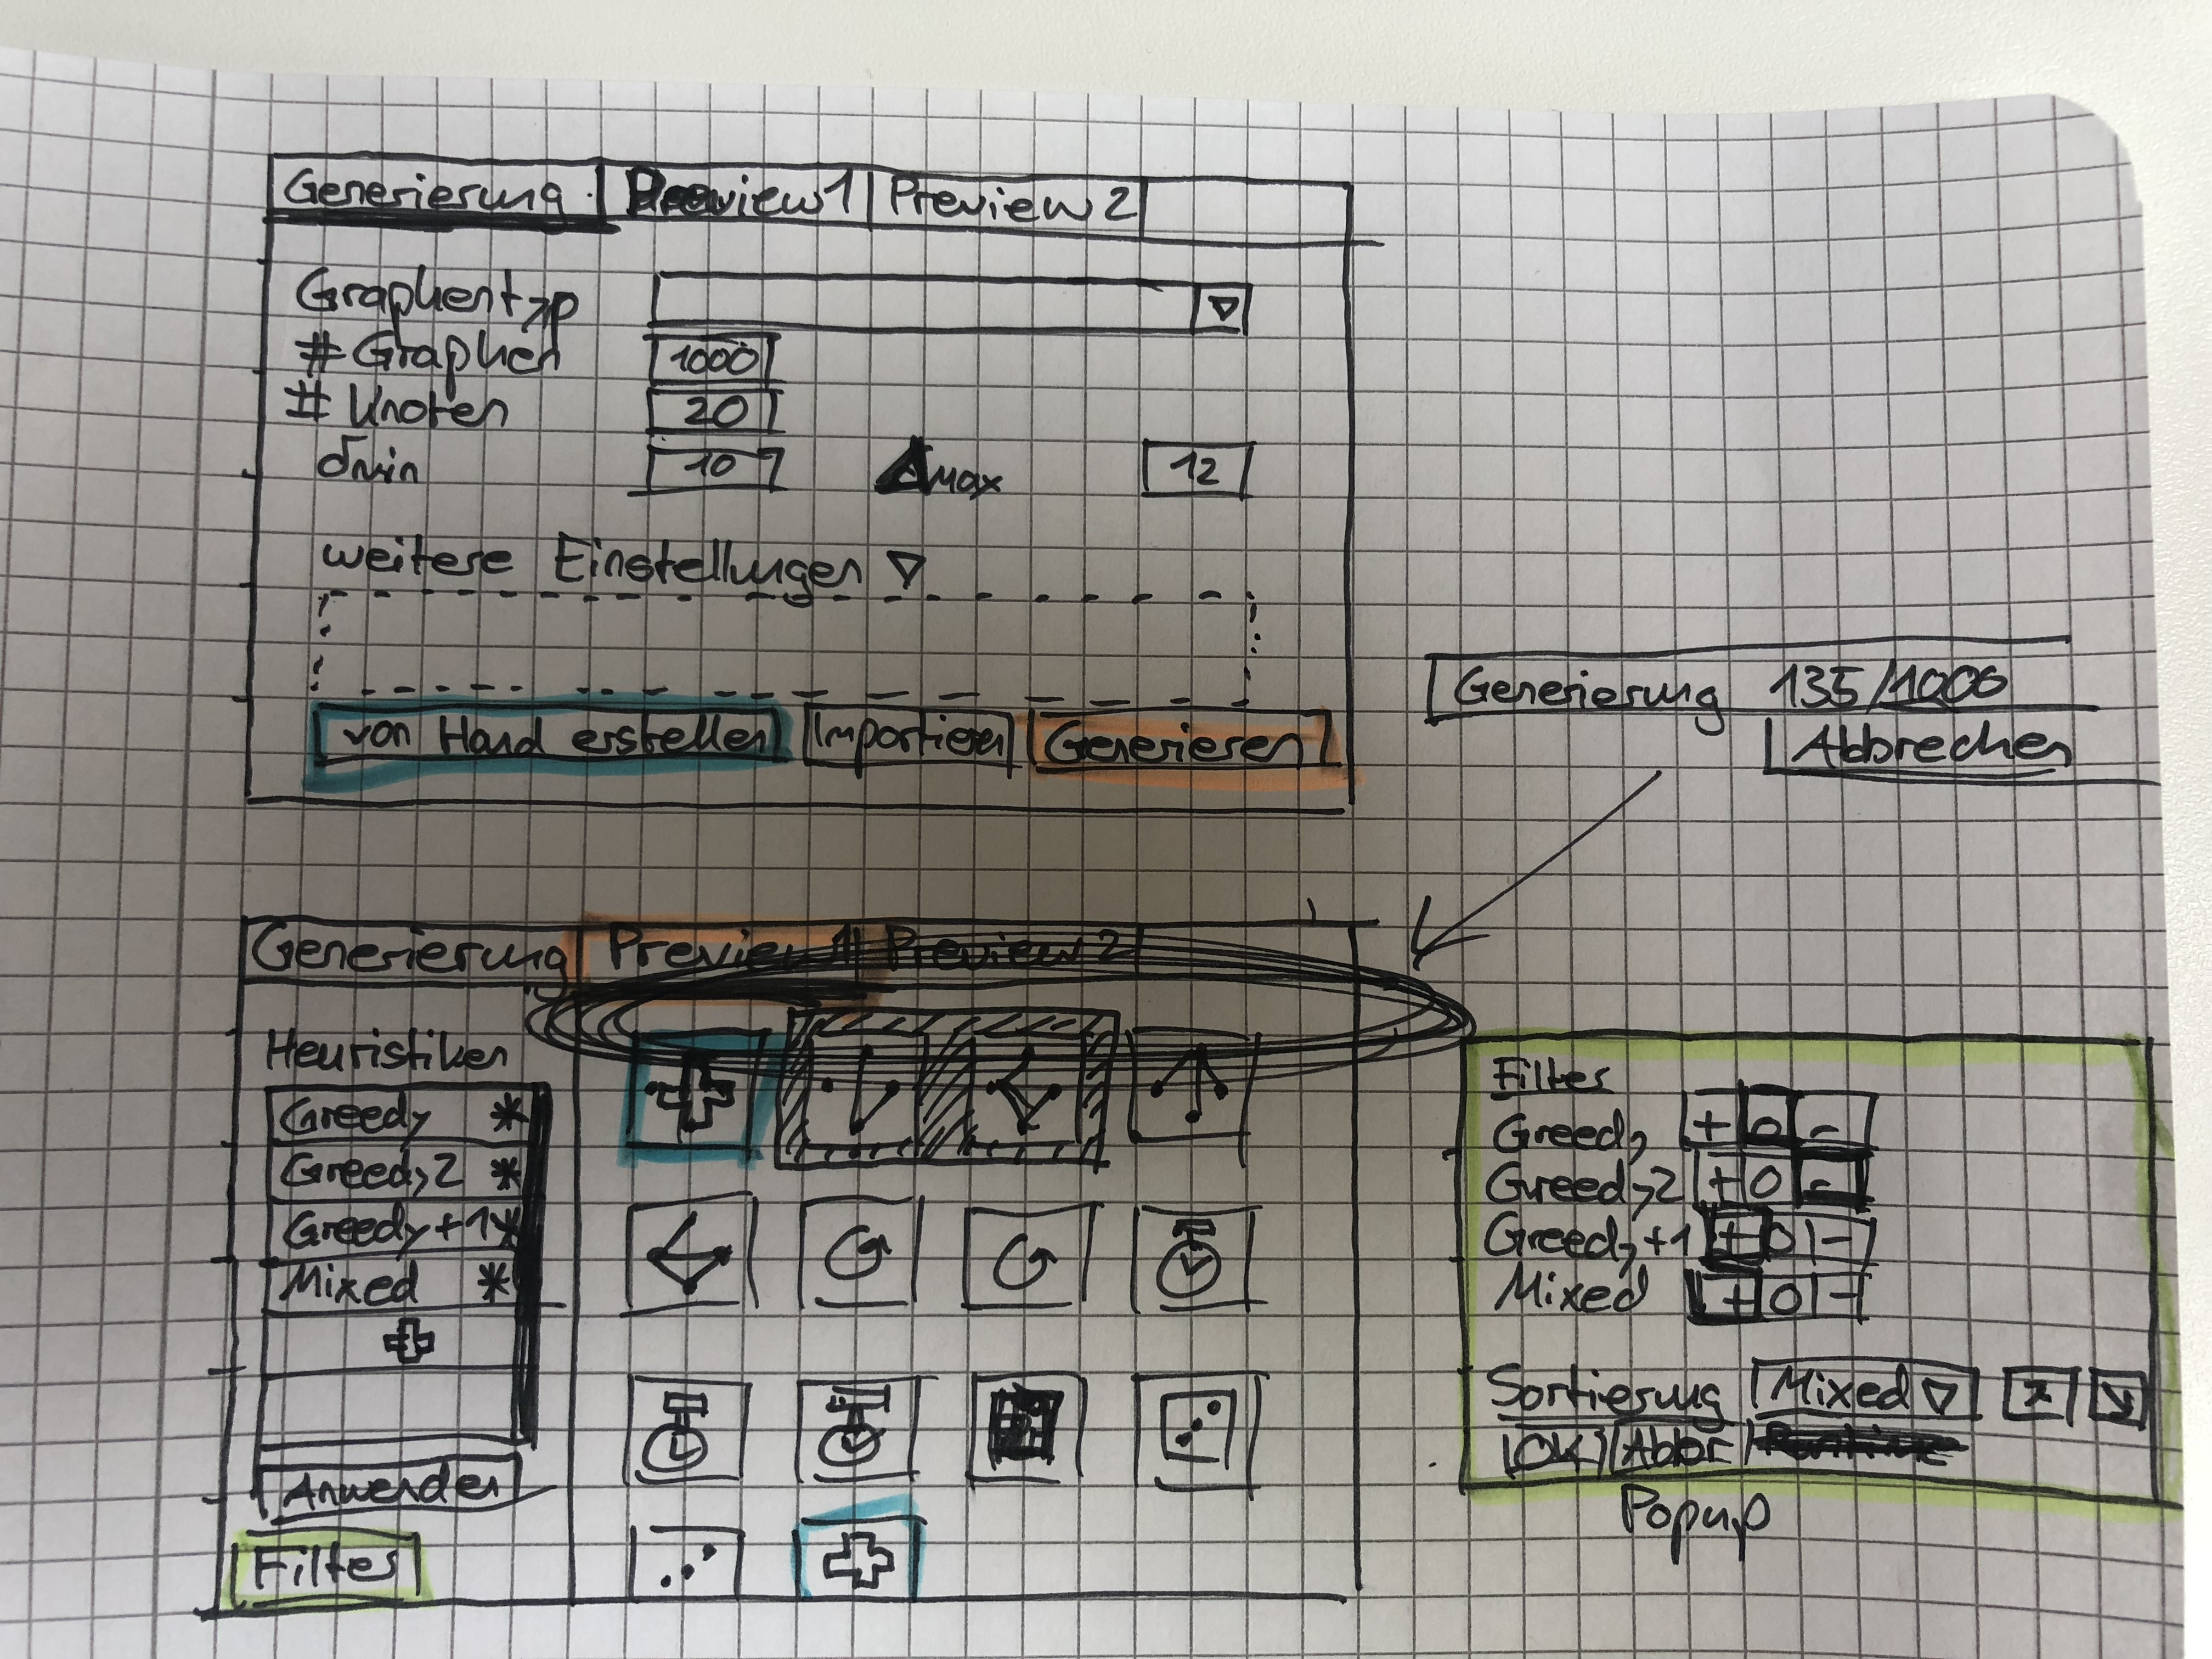 Generierung Preview1 Preview 2
Graphentyp
#Graphen 1000
# Knoten 20
dmin 10 Δmax 12
weitere Einstellungen ▽
von Hand erstellen Importieren Generieren
Generierung 135/1000
Abbrechen
Generierung Preview 1 Preview 2
Heuristiken
Greedy *
Greedy2 *
Greedy+1*
Mixed *
Anwenden
Filter
Filter
Greedy + 0 -
Greedy2 + 0 -
Greedy+1 + 0 -
Mixed + 0 -
Sortierung Mixed ▽
OK Abbr
Popup